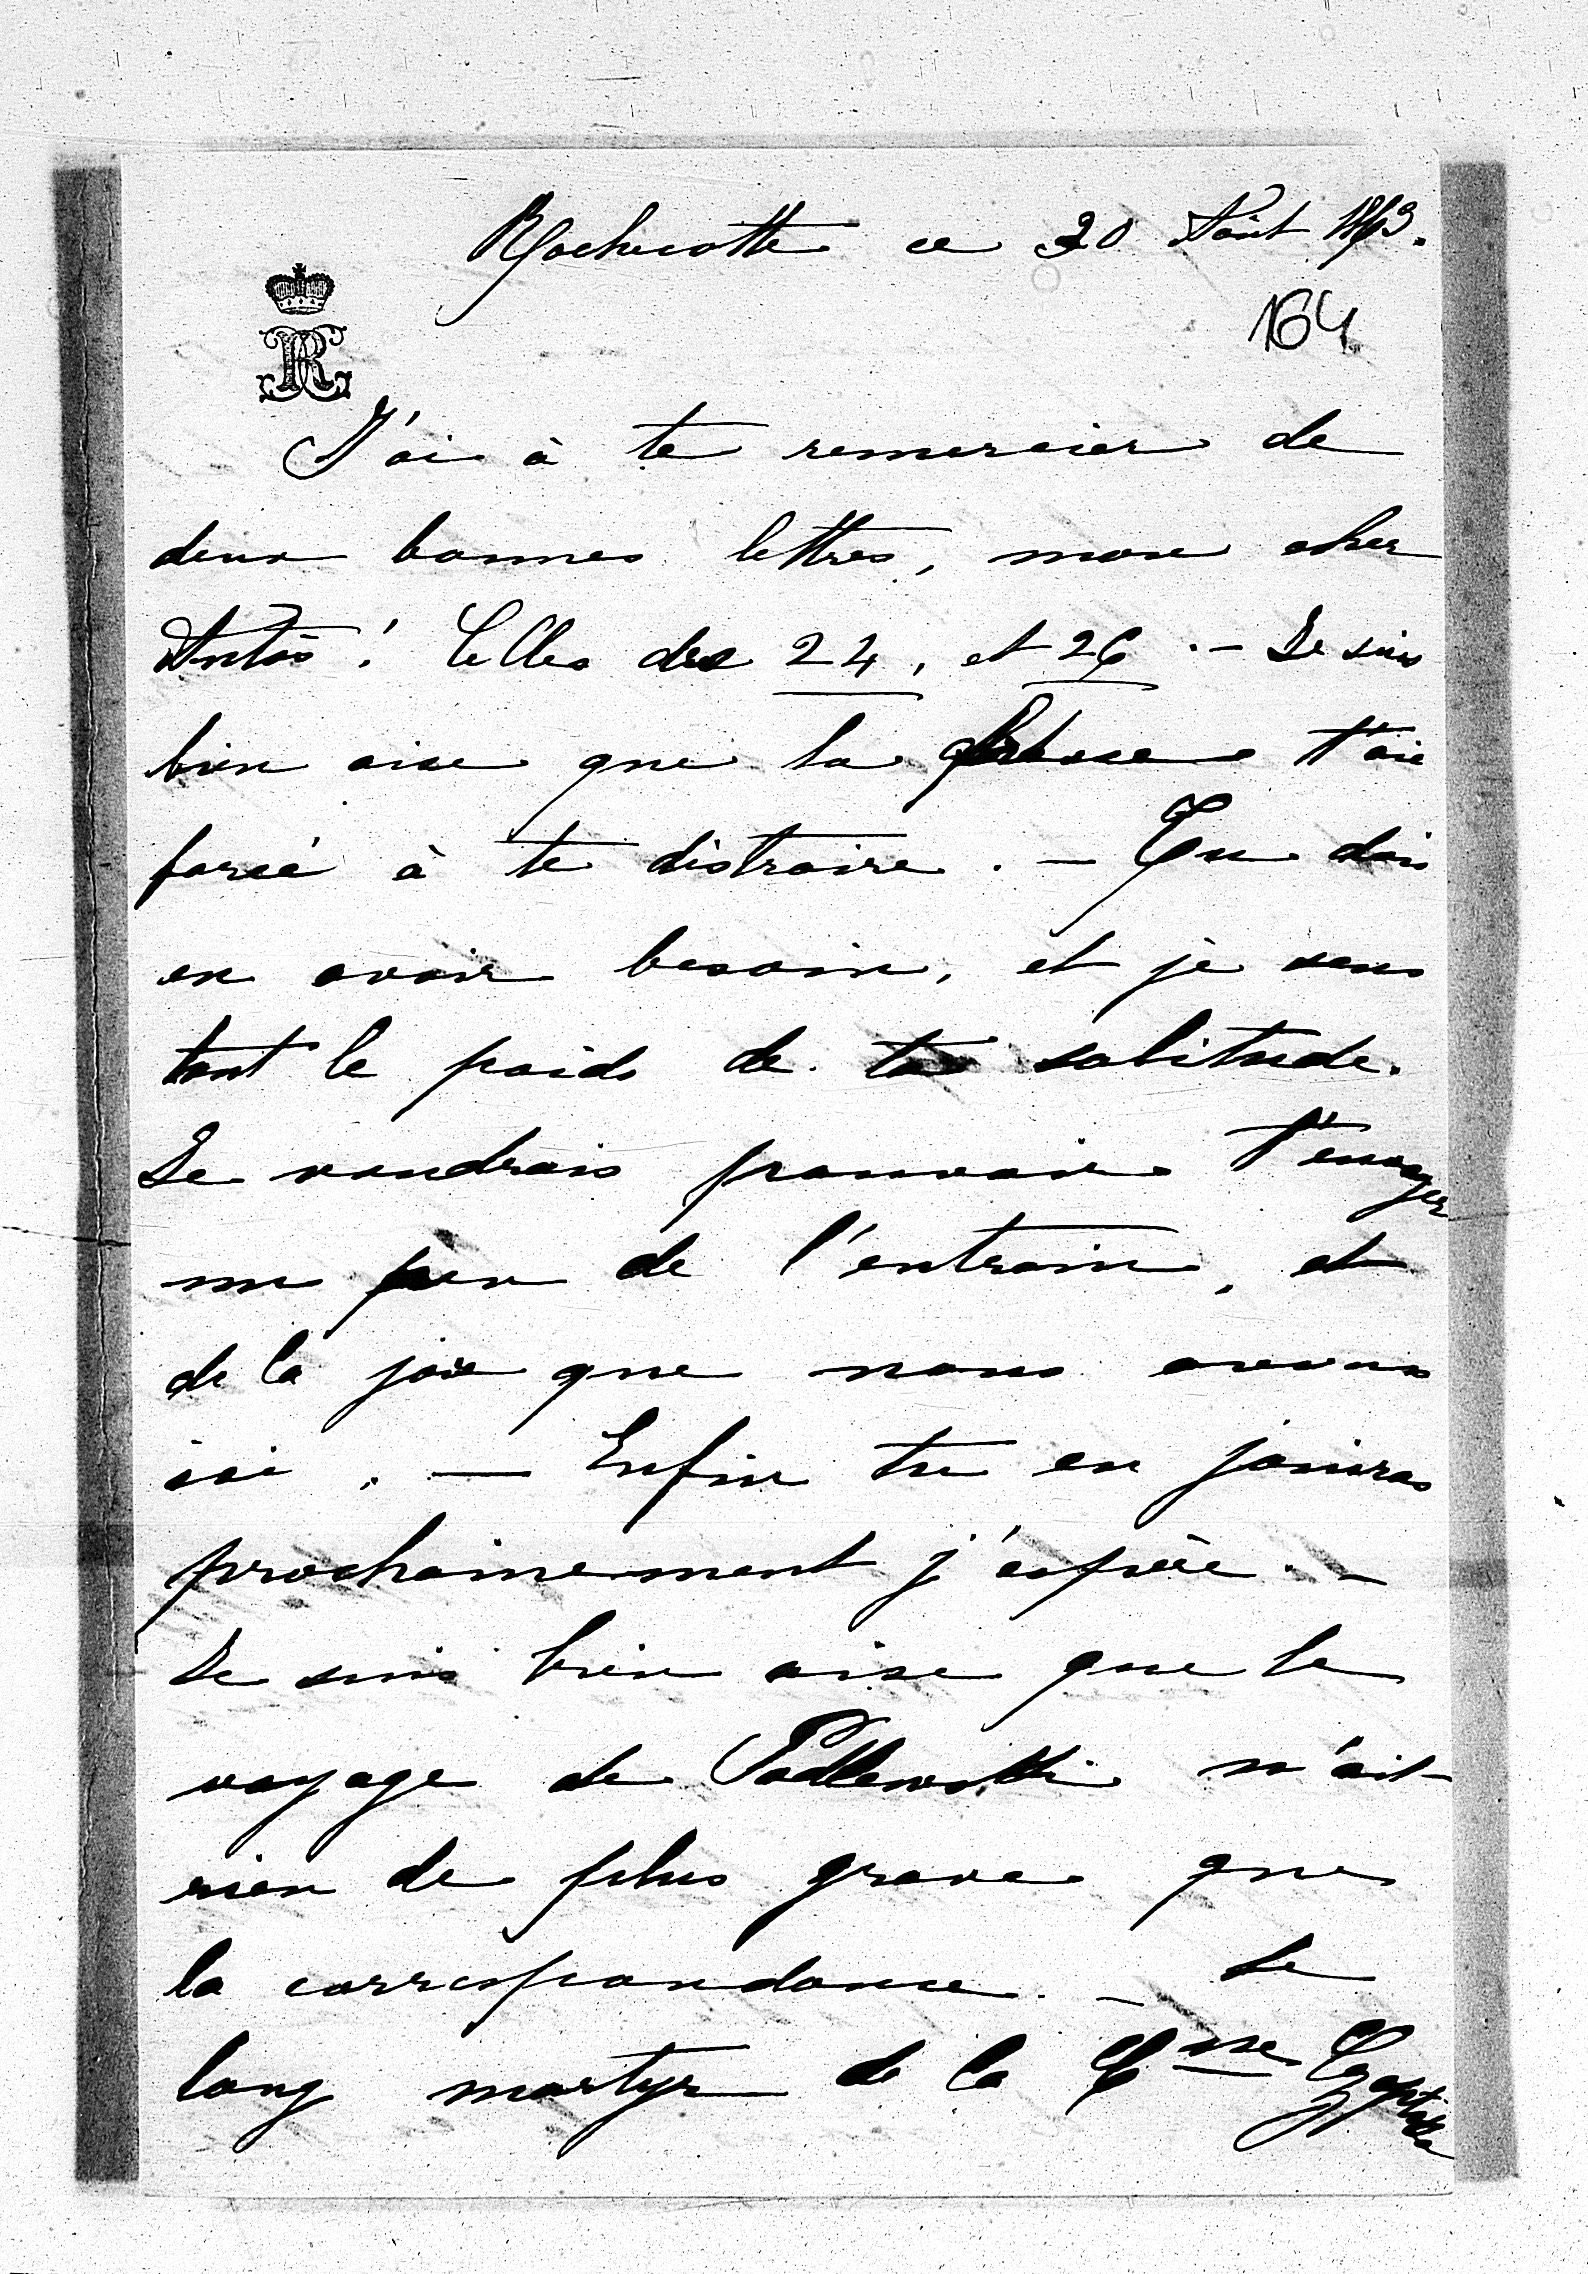 Rochecotte ce 30 Août 1863.
164
R
J'ai à te remercier de
deux bonnes lettres, mon cher
Antos! Celles des 24, et 26.— Je suis
bien aise que la t'aie
forcé à te distraire.— Tu dois
en avoir besoin, et je sens
tout le poids de ta solitude.
Je voudrais pouvoir t'envoyer
un peu de l'entrain, et
de la joie que nous avons
ici.— Enfin tu en jouiras
prochainement j'espère.—
Je suis bien aise que le
voyage de Podlewski n'ait
rien de plus grave que
la correspondance.— Le
long martyr de la Csse